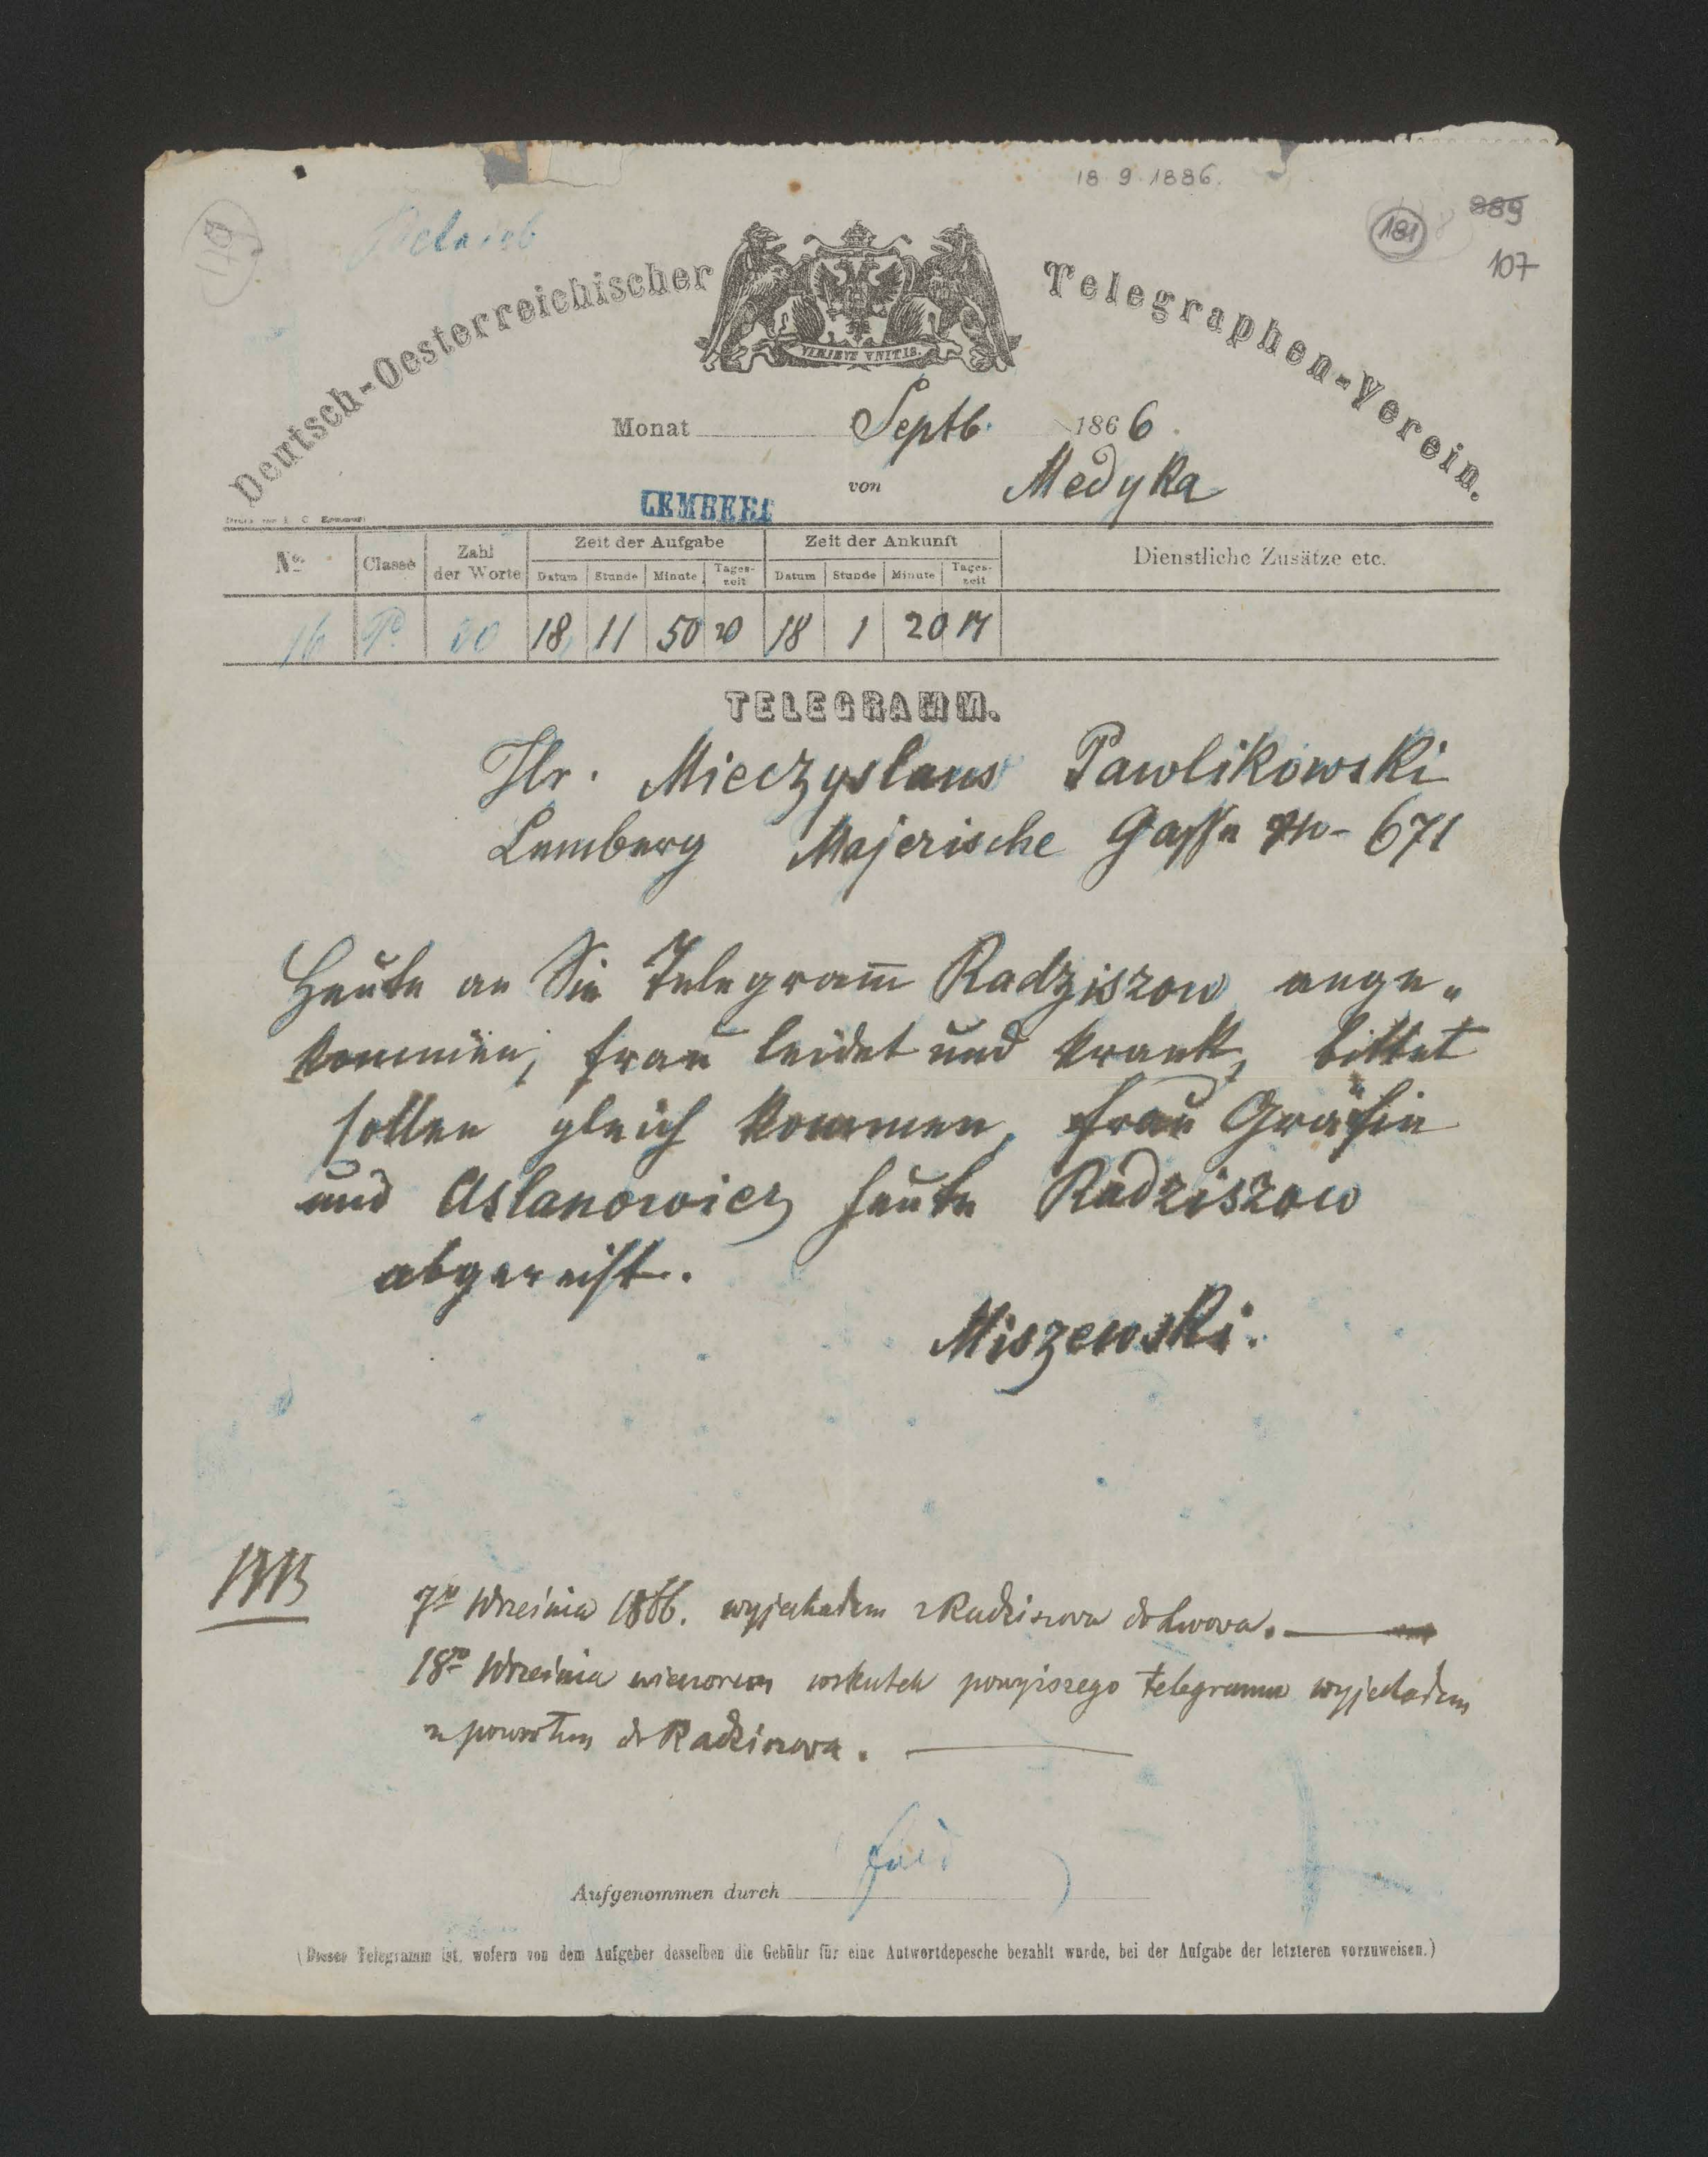 18 9 1886.
181
889
107
179
Deutsch-Oesterreichischer Telegraphen-Verein.
VIRIBVS VNITIS.
Monat Septb. 1866.
von Medyka
LEMBERG
No. Classe Zahl der Worte Zeit der Aufgabe Zeit der Ankunft Dienstliche Zusätze etc.
Datum Stunde Minute Tages-zeit Datum Stunde Minute Tages-zeit
16 P. 20 18 11 50 18 1 20 M
TELEGRAMM.
Hr. Mieczyslaus Pawlikowski
Lemberg Majerische Gasse No- 671
Heute an Sie Telegram̅ Radziszow ange„
kommen, Frau leidet und krank, bittet
sollen gleich kommen, Frau Gräfin
und Aslanowicz heute Radziszow
abgereist.
Miszewski.
7go Września 1866. wyjechałem z Radziszowa do Lwowa.
18go Września wieczorem wskutek powyższego telegramu wyjechałem
z powrotem do Radziszowa.
Aufgenommen durch
(Dieses Telegramm ist, wofern von dem Aufgeber desselben die Gebühr für eine Antwortdepesche bezahlt wurde, bei der Aufgabe der letzteren vorzuweisen.)